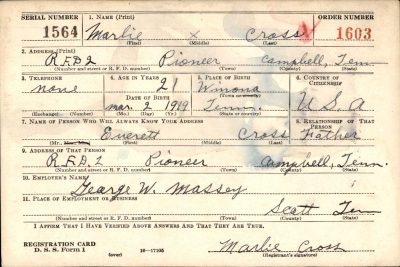 SERIAL NUMBER 1. NAME (Print) ORDER NUMBER
1564 Marlie x Cross 1603
(First) (Middle) (Last)
2. ADDRESS (Print)
R.F.D 2 Pioneer Campbell, Tenn.
(Number and street or R. F. D. number) (Town) (County) (State)
3. TELEPHONE 4. AGE IN YEARS 5. PLACE OF BIRTH 6. COUNTRY OF CITIZENSHIP
none 21 Winona
DATE OF BIRTH (Town or county)
Mar. 2 1919 Tenn. U.S.A
(Exchange) (Number) (Mo.) (Day) (Yr.) (State or country)
7. NAME OF PERSON WHO WILL ALWAYS KNOW YOUR ADDRESS 8. RELATIONSHIP OF THAT PERSON
Everett Cross Father
(Mr., Mrs., Miss) (First) (Middle) (Last)
9. ADDRESS OF THAT PERSON
R.F.D.2 Pioneer Campbell, Tenn.
(Number and street or R. F. D. number) (Town) (County) (State)
10. EMPLOYER'S NAME
George W. Massey
11. PLACE OF EMPLOYMENT OR BUSINESS
Scott Tenn
(Number and street or R. F. D. number) (Town) (County) (State)
I AFFIRM THAT I HAVE VERIFIED ABOVE ANSWERS AND THAT THEY ARE TRUE.
REGISTRATION CARD
D. S. S. Form 1 (over) 16—17105 Marlie Cross
(Registrant's signature)